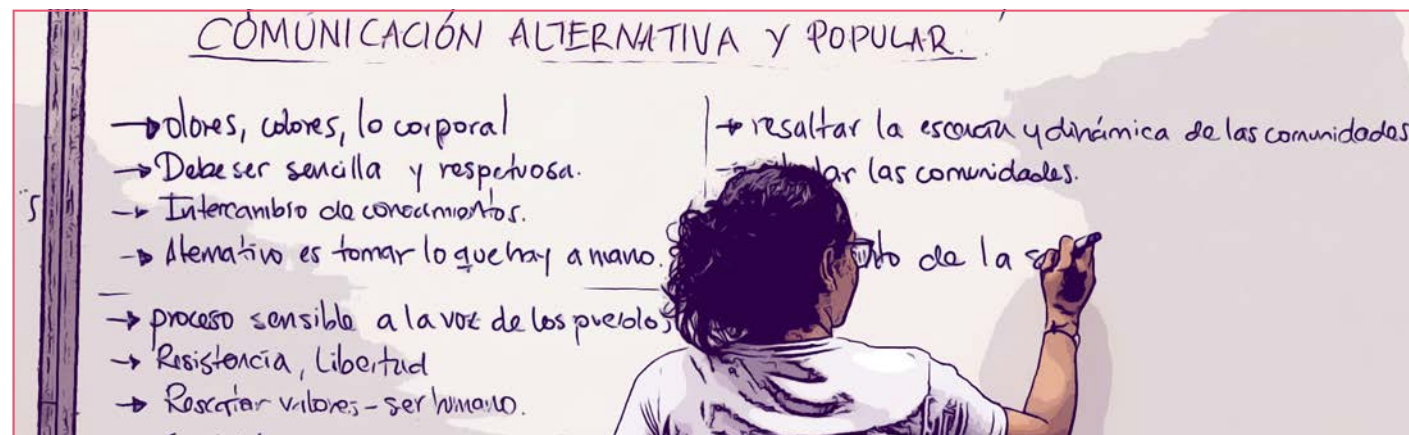 COMUNICACIÓN ALTERNATIVA Y POPULAR.
→ olores, colores, lo corporal
→ Debe ser sencilla y respetuosa.
→ Intercambio de conocimientos.
→ Alternativo es tomar lo que hay a mano.
→ proceso sensible a la voz de los pueblos
→ Resistencia, Libertad
→ Rescatar valores - ser humano.
→ resaltar la esencia y dinámica de las comunidades
las comunidades.
de la